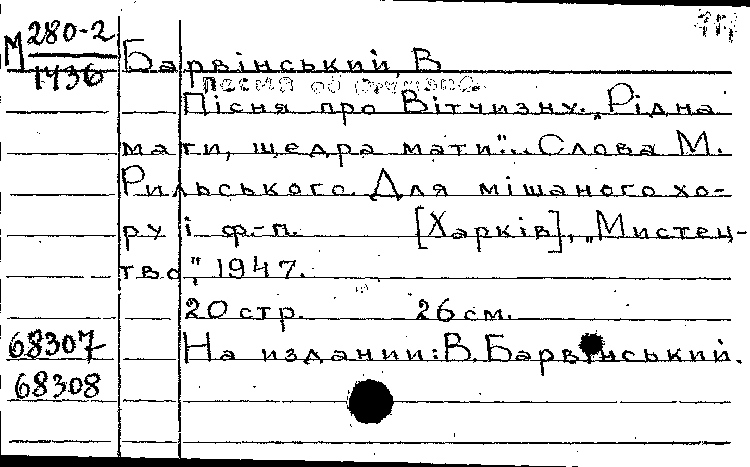 М 280-2
1436
Барвінський, В
Песня об отчизне.
Пісня про Вітчизну. „Рідна
мати, щедра мати"... Слова М.
Рильського. Для мішаного хо-
ру і ф.-п. [Харків], „Мистец-
тво", 1947.
20 стр. 26 см.
68307 На издании: В. Барвінський.
68308